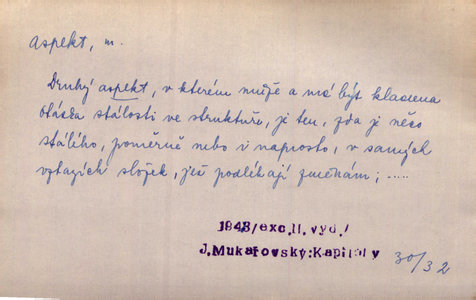 aspekt, m.
Druhý aspekt, v kterém může a má být kladena
otázka stálosti ve struktuře, je ten, zda je něco
stálého, poměrně nebo i naprosto, v samých
vztazích složek, jež podléhají změnám; .....
1948/exc.II.vyd./
J.Mukařovský:Kapitoly
30/32